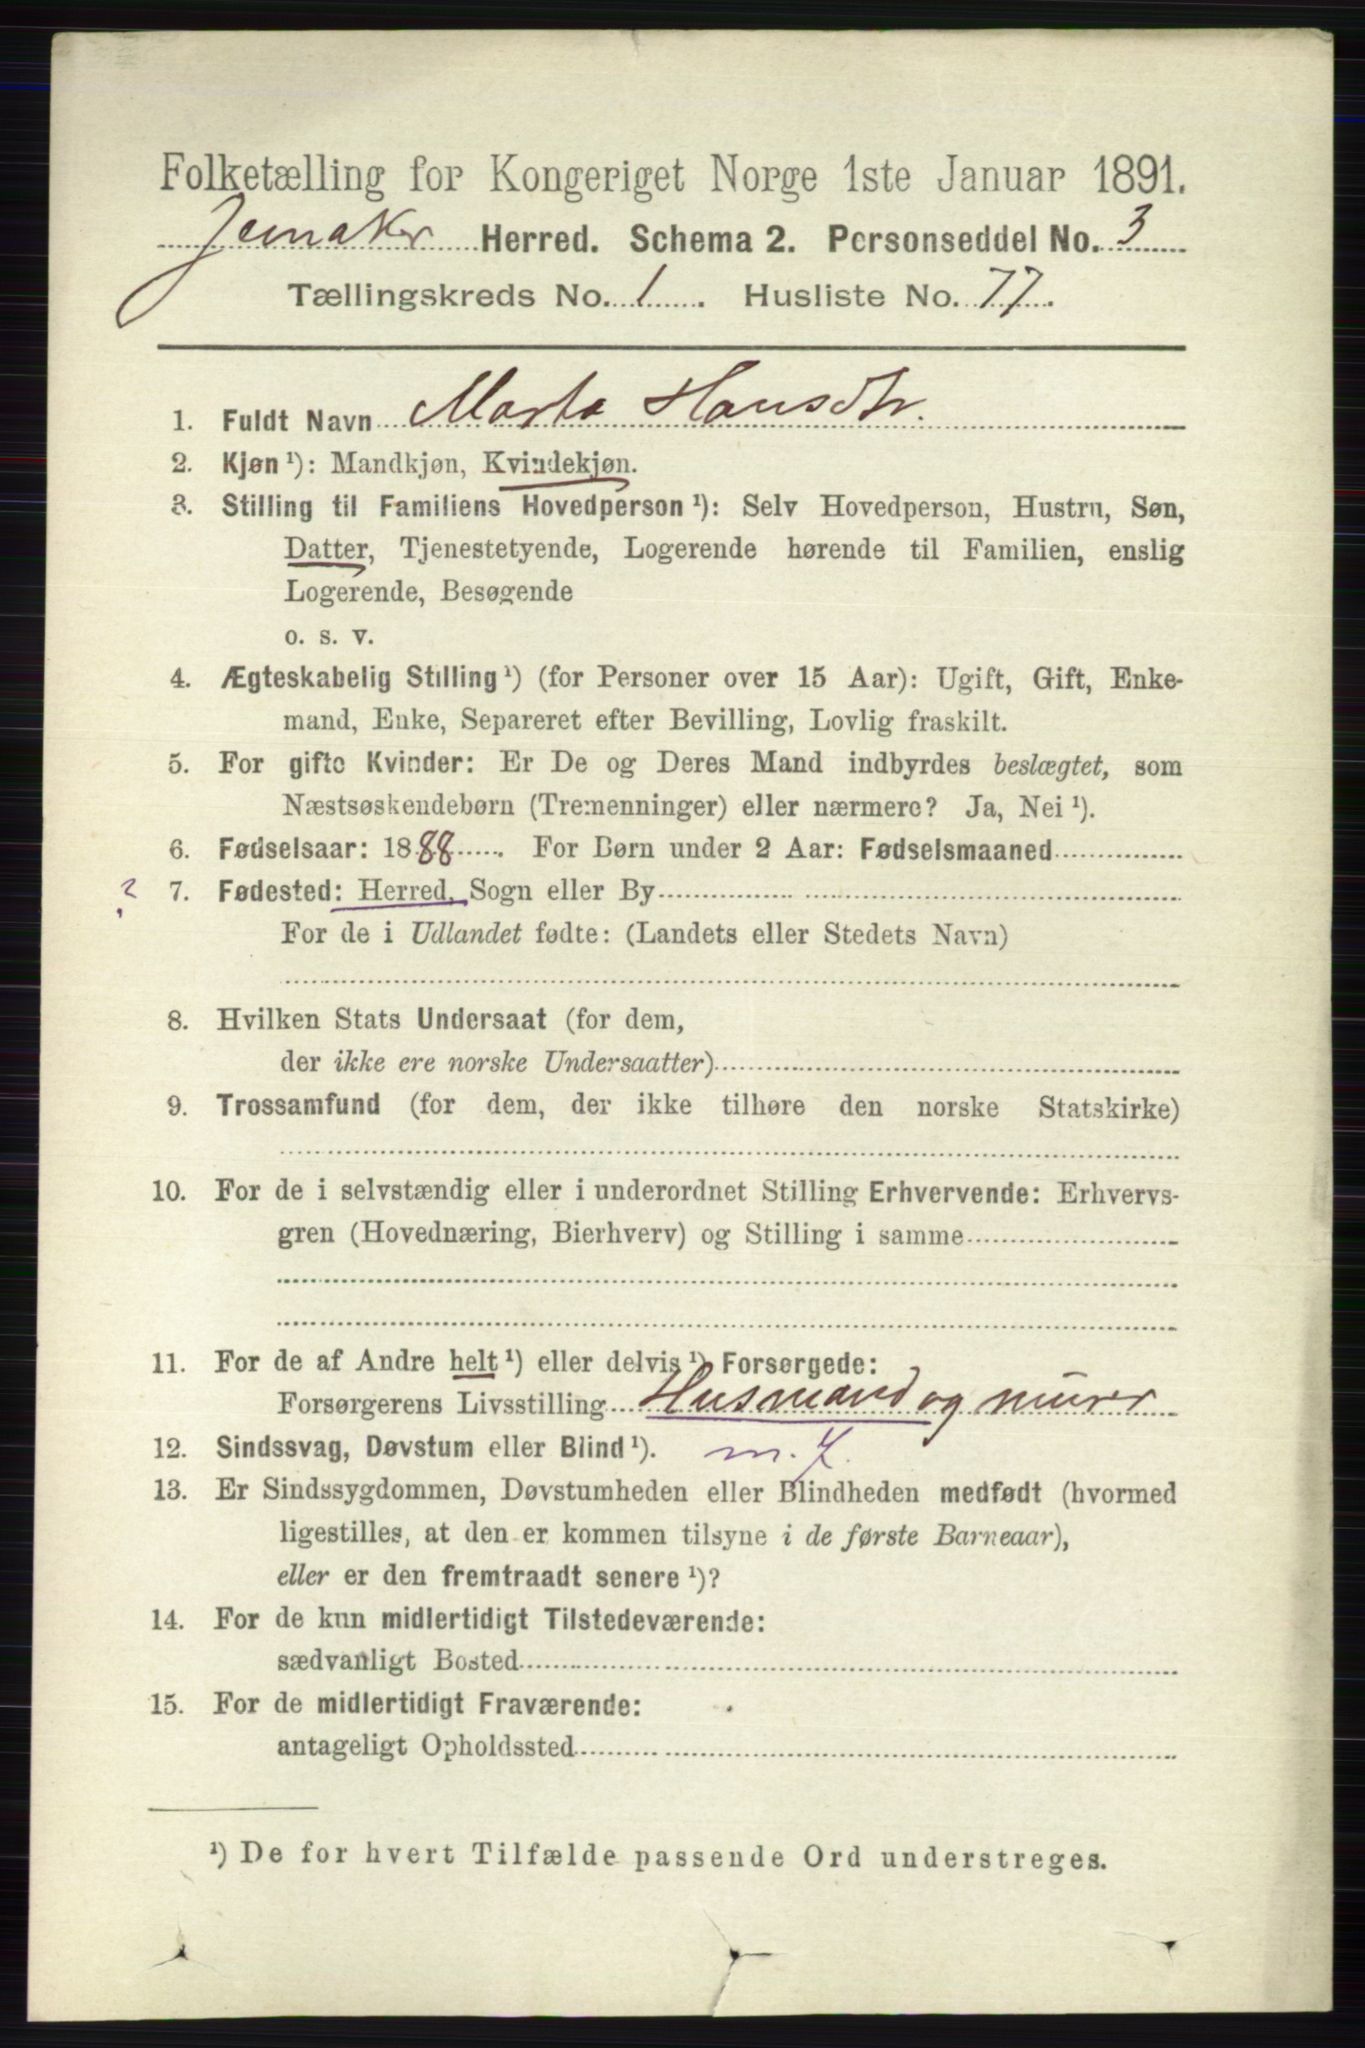 Folketælling for Kongeriget Norge 1ste Januar 1891.
Jevnaker Herred. Schema 2. Personseddel No. 3
Tællingskreds No. 1. Husliste No. 77.
1. Fuldt Navn Marta Hansdtr.
2. Kjøn ¹): Mandkjøn, Kvindekjøn.
3. Stilling til Familiens Hovedperson ¹): Selv Hovedperson, Hustru, Søn,
Datter, Tjenestetyende, Logerende hørende til Familien, enslig
Logerende, Besøgende
o. s. v.
4. Ægteskabelig Stilling ¹) (for Personer over 15 Aar): Ugift, Gift, Enke-
mand, Enke, Separeret efter Bevilling, Lovlig fraskilt.
5. For gifte Kvinder: Er De og Deres Mand indbyrdes beslægtet, som
Næstsøskendebørn (Tremenninger) eller nærmere? Ja, Nei ¹).
6. Fødselsaar: 1888. For Børn under 2 Aar: Fødselsmaaned
? 7. Fødested: Herred, Sogn eller By
For de i Udlandet fødte: (Landets eller Stedets Navn)
8. Hvilken Stats Undersaat (for dem,
der ikke ere norske Undersaatter)
9. Trossamfund (for dem, der ikke tilhøre den norske Statskirke)
10. For de i selvstændig eller i underordnet Stilling Erhvervende: Erhvervs-
gren (Hovednæring, Bierhverv) og Stilling i samme
11. For de af Andre helt ¹) eller delvis ¹) Forsørgede:
Forsørgerens Livsstilling Husmand og murer
12. Sindssvag, Døvstum eller Blind ¹). m. J.
13. Er Sindssygdommen, Døvstumheden eller Blindheden medfødt (hvormed
ligestilles, at den er kommen tilsyne i de første Barneaar),
eller er den fremtraadt senere ¹)?
14. For de kun midlertidigt Tilstedeværende:
sædvanligt Bosted
15. For de midlertidigt Fraværende:
antageligt Opholdssted
¹) De for hvert Tilfælde passende Ord understreges.